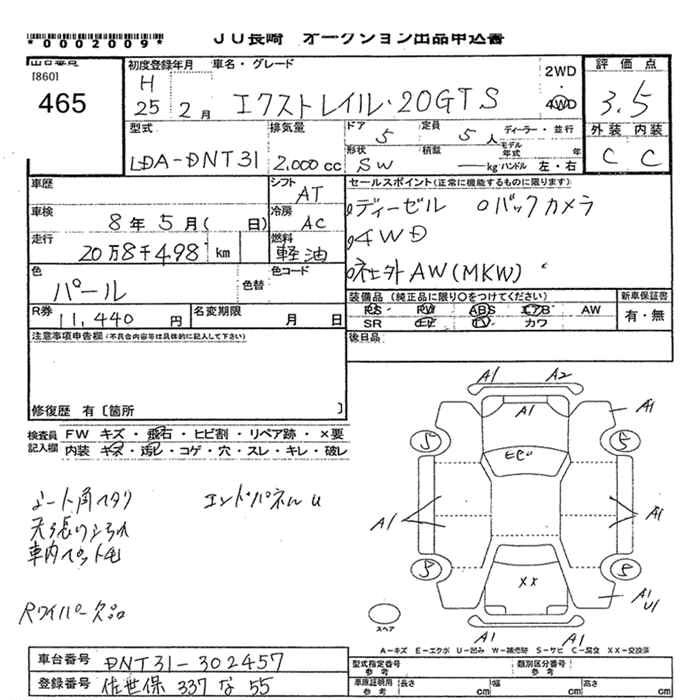 *0002009*
JU長崎 オークション出品申込書
[860]
465
初度登録年月
H
25 2月
車名・グレード
エクストレイル・20GTS
2WD
・
4WD
評価点
3.5
外装 内装
C C
型式
LDA-DNT31
排気量
2,000cc
ドア 5
定員 5人
ディーラー・並行
形状 SW
積載 kg
モデル年式 年
ハンドル 左・右
車歴
シフト AT
車検 8年5月( 日)
冷房 AC
走行 20万8千498 km
燃料 軽油
色 パール
色替
色コード
R券 11,440円
名変期限 月 日
セールスポイント(正常に機能するものに限ります)
ディーゼル バックカメラ
4WD
社外AW(MKW)
装備品(純正品に限り○をつけてください)
PS PW ABS エアB AW
SR カワ
新車保証書
有・無
後日品
注意事項申告欄(不具合内容等は具体的に記入して下さい)
修復歴 有〔箇所 〕
検査員記入欄
FW キズ・飛石・ヒビ割・リペア跡・×要
内装 キズ・汚レ・コゲ・穴・スレ・キレ・破レ
シート角ヘタリ
エンドパネルU
車内ペット毛
Rワイパー欠品
A1 A2
A1
A1
5 5
A1 A1
5 5
XX
A1
U1
A1 A1
スペア
A-キズ E-エクボ U-凹み W-補修跡 S-サビ C-腐食 XX-交換済
車台番号 DNT31-302457
登録番号 佐世保 337 な 55
型式指定番号 参考
類別区分番号 参考
車庫証明用 参考
長さ cm
幅 cm
高さ cm